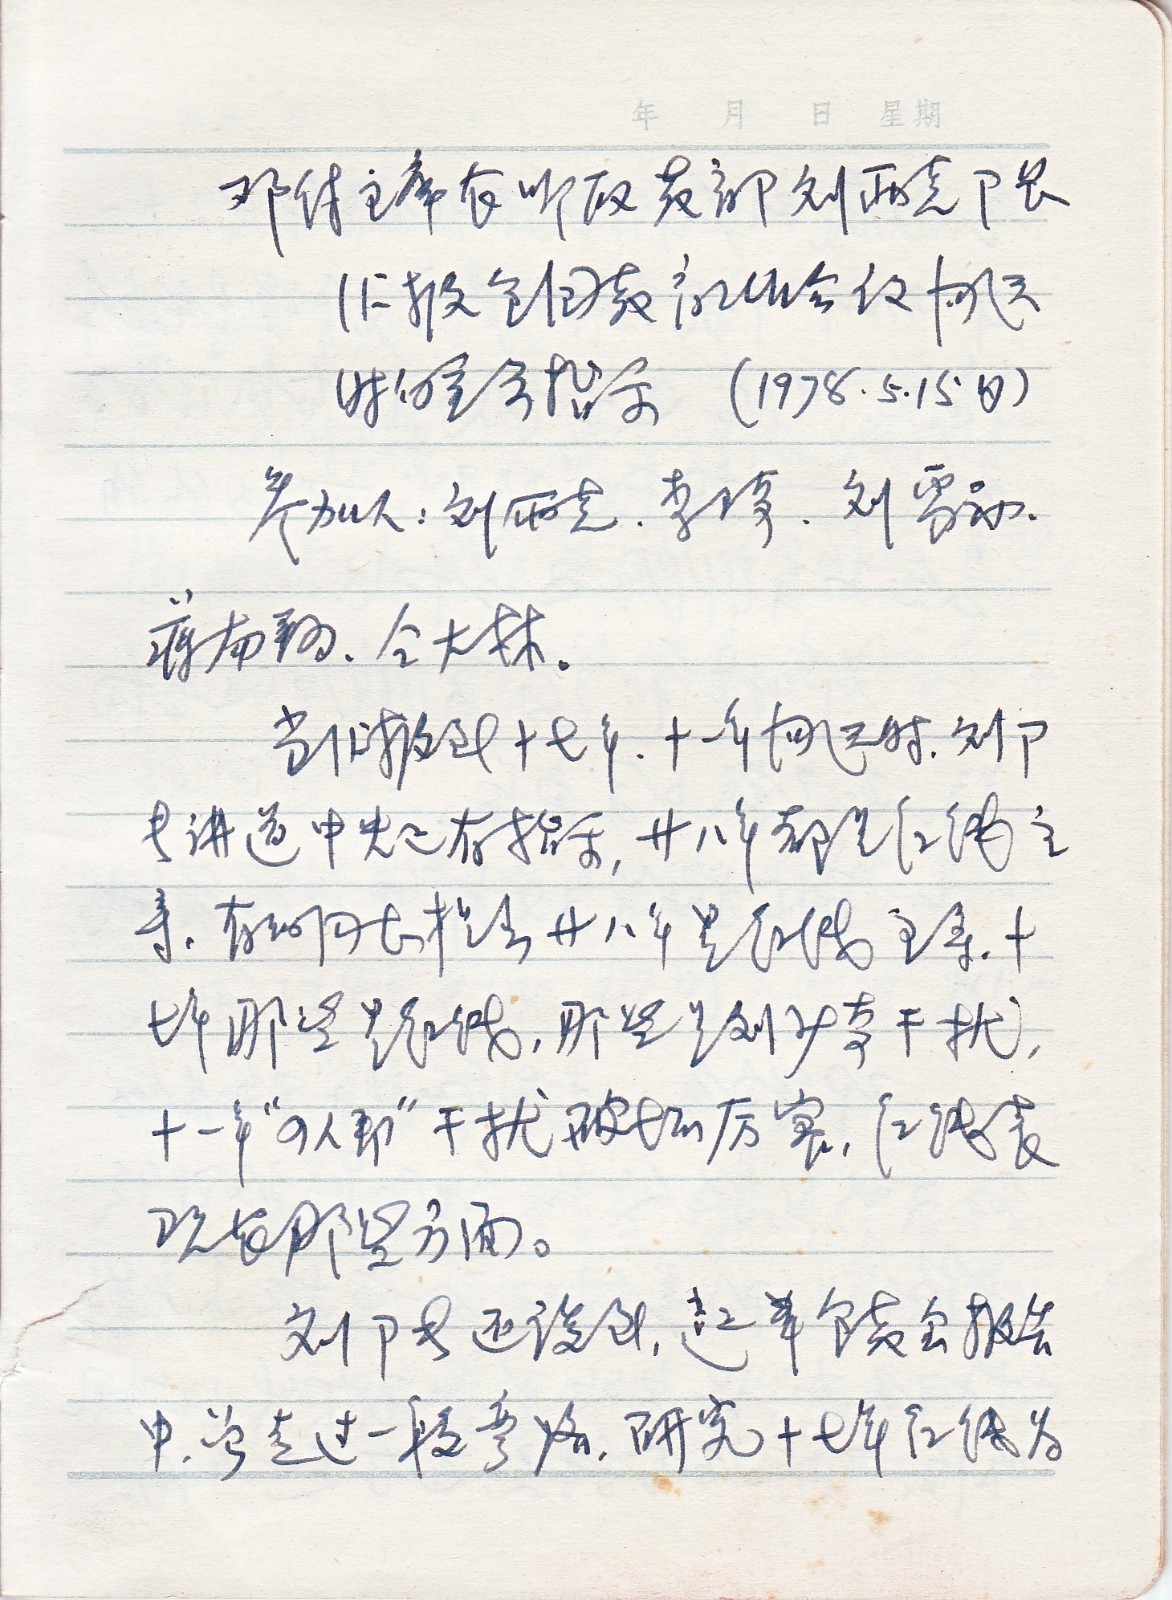 年 月 日 星期
邓付主席在听取教部刘西尧卩长
汇报全国教育工作会议情况
时的重要指示 (1978.5.15日)
参加人：刘西尧、李琦、刘雪初、
蒋南翔、仝大林。
当汇报到十七年、十一年情况时，刘卩
长讲道中央已有指示，廿八年都是红线主
导，有的同志指出廿八年是红线主导，十
七年那些是红线，那些是刘少奇干扰，
十一年“四人帮”干扰破坏厉害，红线表
现在那些方面。
刘卩长还谈到，起草全教会报告
中，曾走过一段弯路，研究十七年红线为